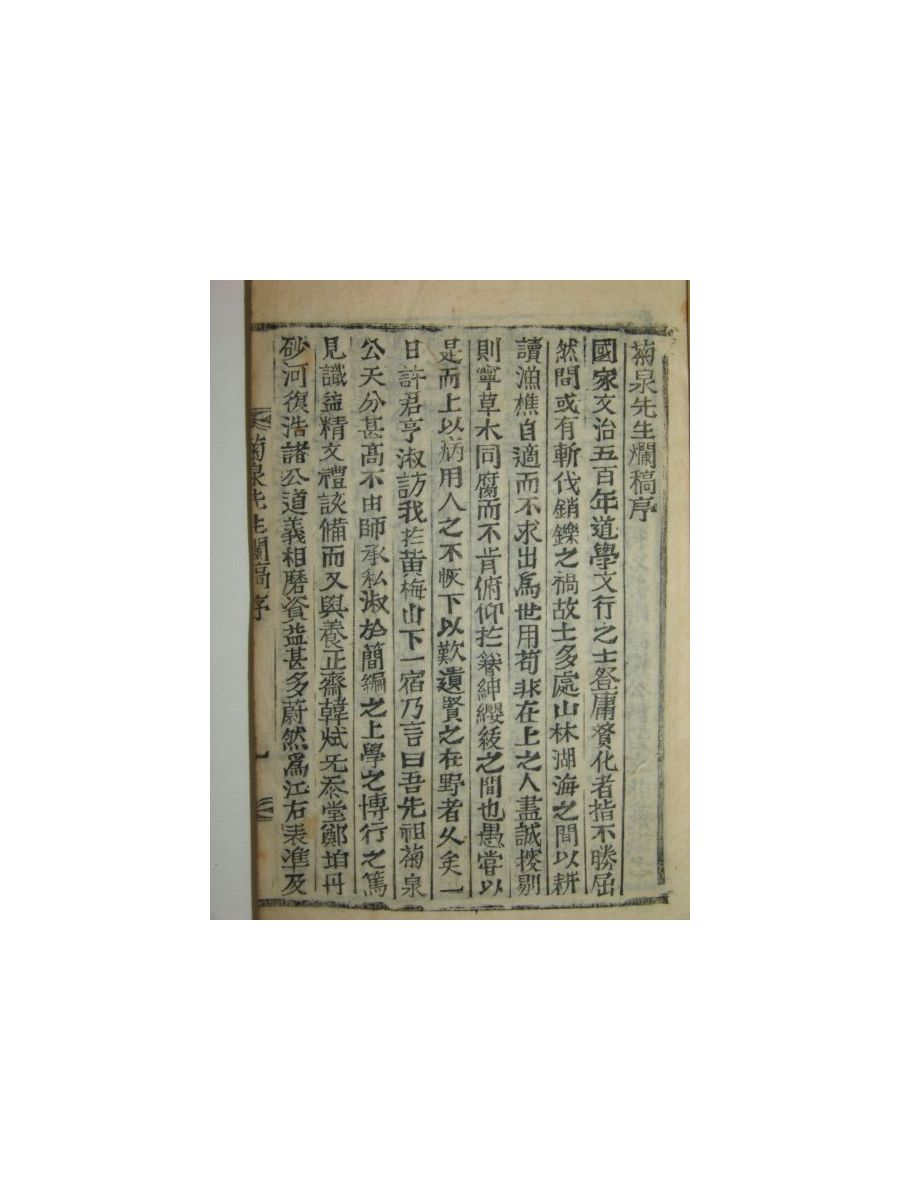 菊泉先生爛稿序
國家文治五百年道學文行之士登庸賛化者指不勝屈
然間或有斬伐銷鑠之禍故士多處山林湖海之間以耕
讀漁樵自適而不求出爲世用苟非在上之人盡誠搜剔
則寧草木同腐而不肯俯仰於簪紳纓緌之間也愚嘗以
是而上以病用人之不恢下以歎遺賢之在野者久矣一
日許君亨淑訪我於黃梅山下一宿乃言曰吾先祖菊泉
公天分甚高不由師承私淑於簡編之上學之博行之篤
見識益精文禮該備而又與養正齋韓烒无忝堂鄭垍丹
砂河復浩諸公道義相磨資益甚多蔚然爲江右表準及
菊泉先生爛稿序